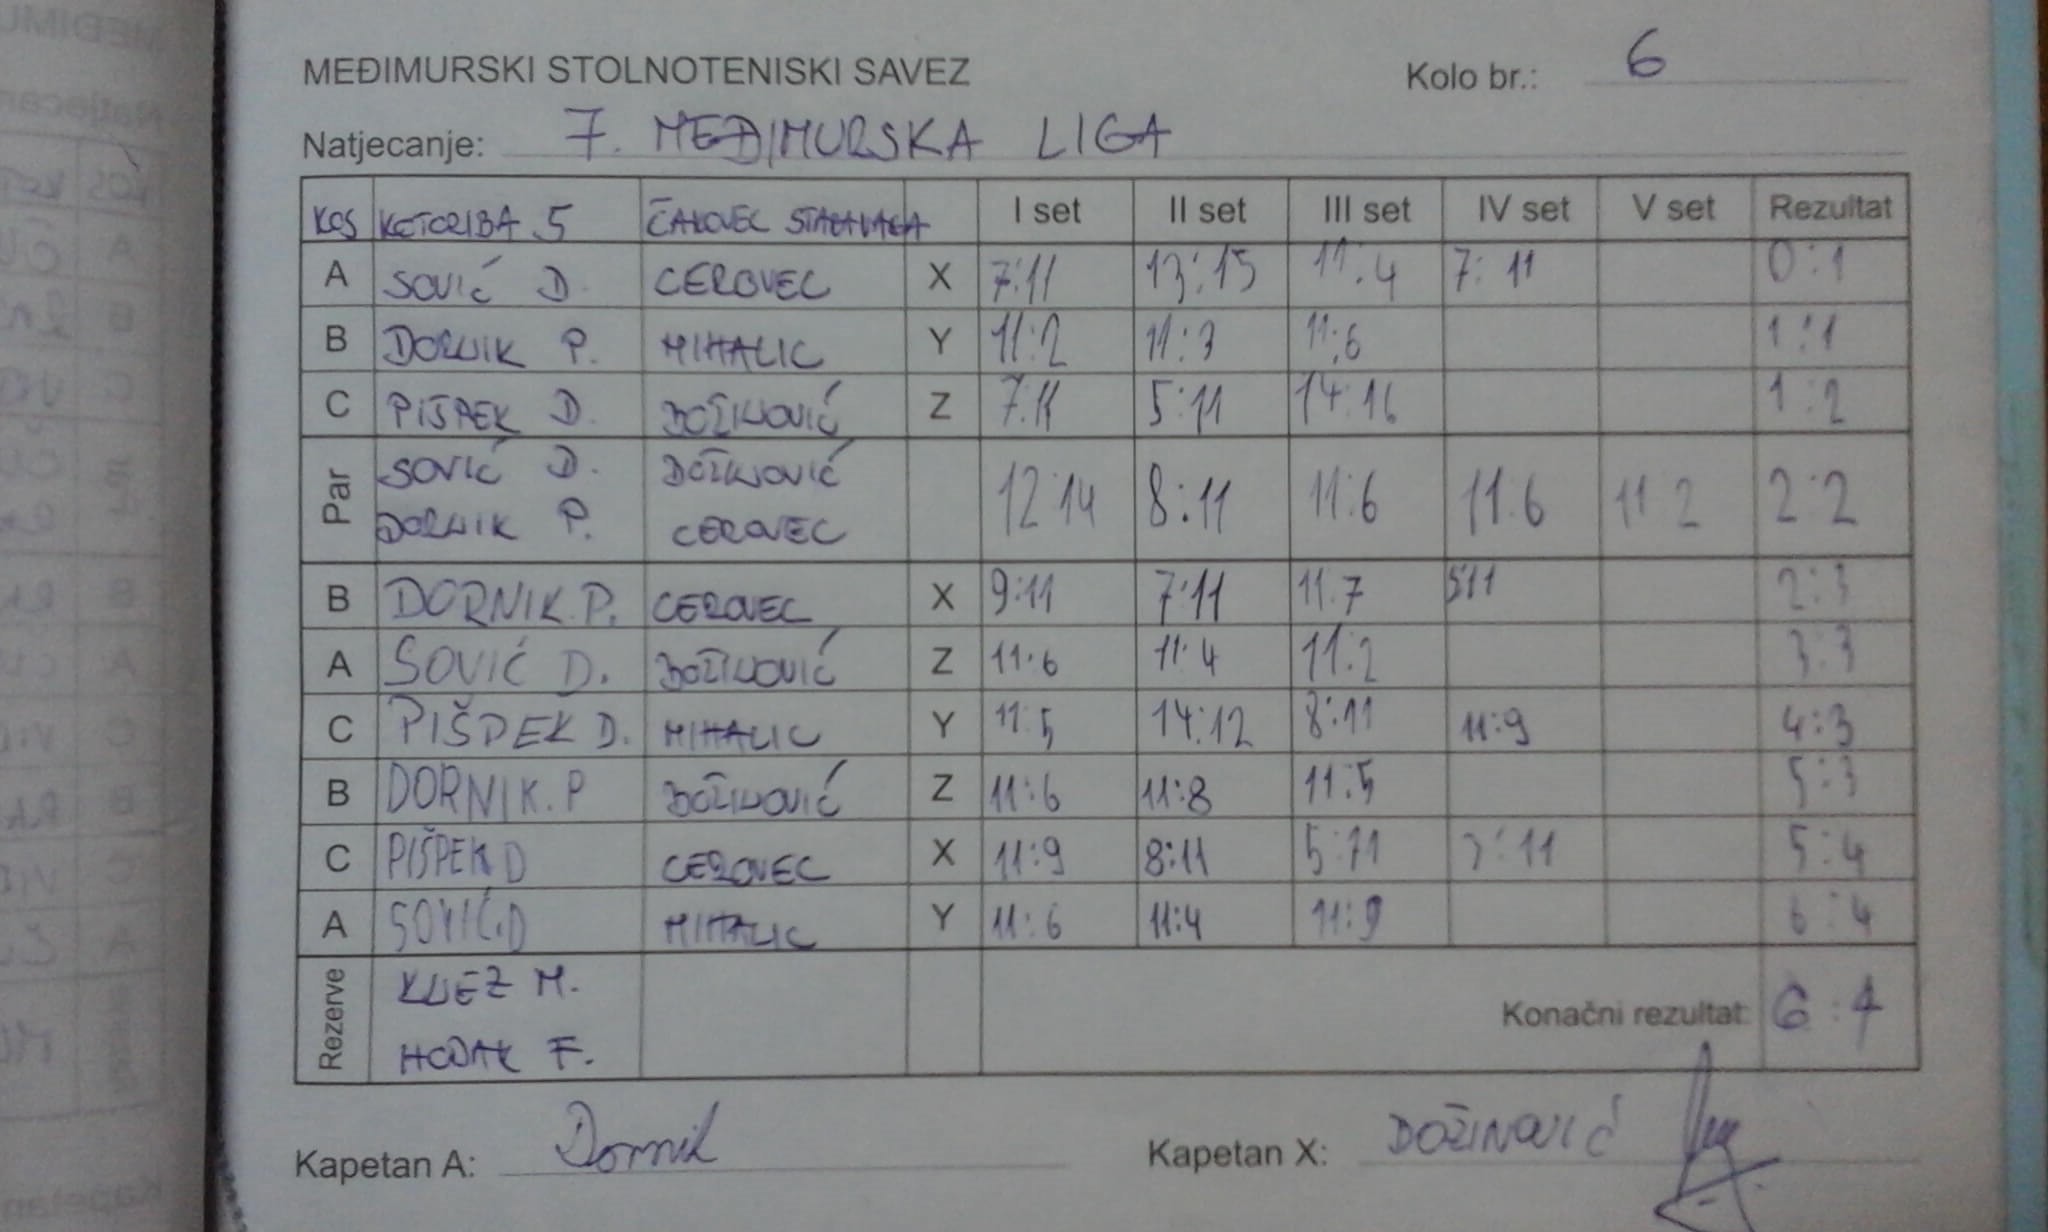 MEĐIMURSKI STOLNOTENISKI SAVEZ Kolo br.: 6
Natjecanje: 7. MEĐIMURSKA LIGA
KOS KOTORIBA 5 ČAKOVEC I set II set III set IV set V set Rezultat
A SOVIĆ D. CEROVEC X 7:11 13:15 11:4 7:11 0:1
B DORNIK P. MIHALIC Y 11:2 11:3 11:6 1:1
C PIŠPEK D. BOŽINOVIĆ Z 7:11 5:11 14:16 1:2
Par SOVIĆ D. BOŽINOVIĆ 12:14 8:11 11:6 11:6 11:2 2:2
DORNIK P. CEROVEC
B DORNIK P. CEROVEC X 9:11 7:11 11:7 5:11 2:3
A SOVIĆ D. BOŽINOVIĆ Z 11:6 11:4 11:2 3:3
C PIŠPEK D. MIHALIC Y 11:5 14:12 8:11 11:9 4:3
B DORNIK.P BOŽINOVIĆ Z 11:6 11:8 11:5 5:3
C PIŠPEK D CEROVEC X 11:9 8:11 5:11 5:4
A SOVIĆ.D MIHALIC Y 11:6 11:4 11:9 6:4
Rezerve KNEZ M. Konačni rezultat: 6:4
HODAK F.
Kapetan A: Dornik Kapetan X: BOŽINOVIĆ